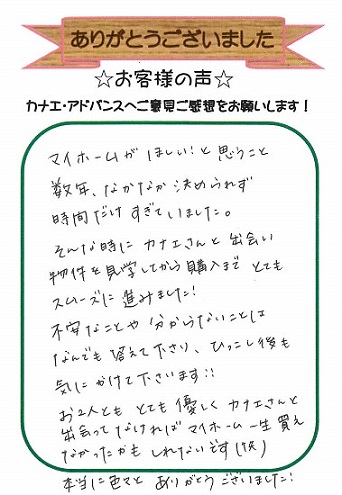 ありがとうございました
☆お客様の声☆
カナエ・アドバンスへご意見ご感想をお願いします!
マイホームがほしい!と思うこと
数年、なかなか決められず
時間だけすぎていました。
そんな時にカナエさんと出会い
物件を見学してから購入までとても
スムーズに進みました!
不安なことや分からないことは
なんでも答えて下さり、ひっこし後も
気にかけて下さいます!!
お2人ともとても優しくカナエさんと
出会ってなければマイホーム一生買え
なかったかもしれないです(笑)
本当に色々とありがとうございました!